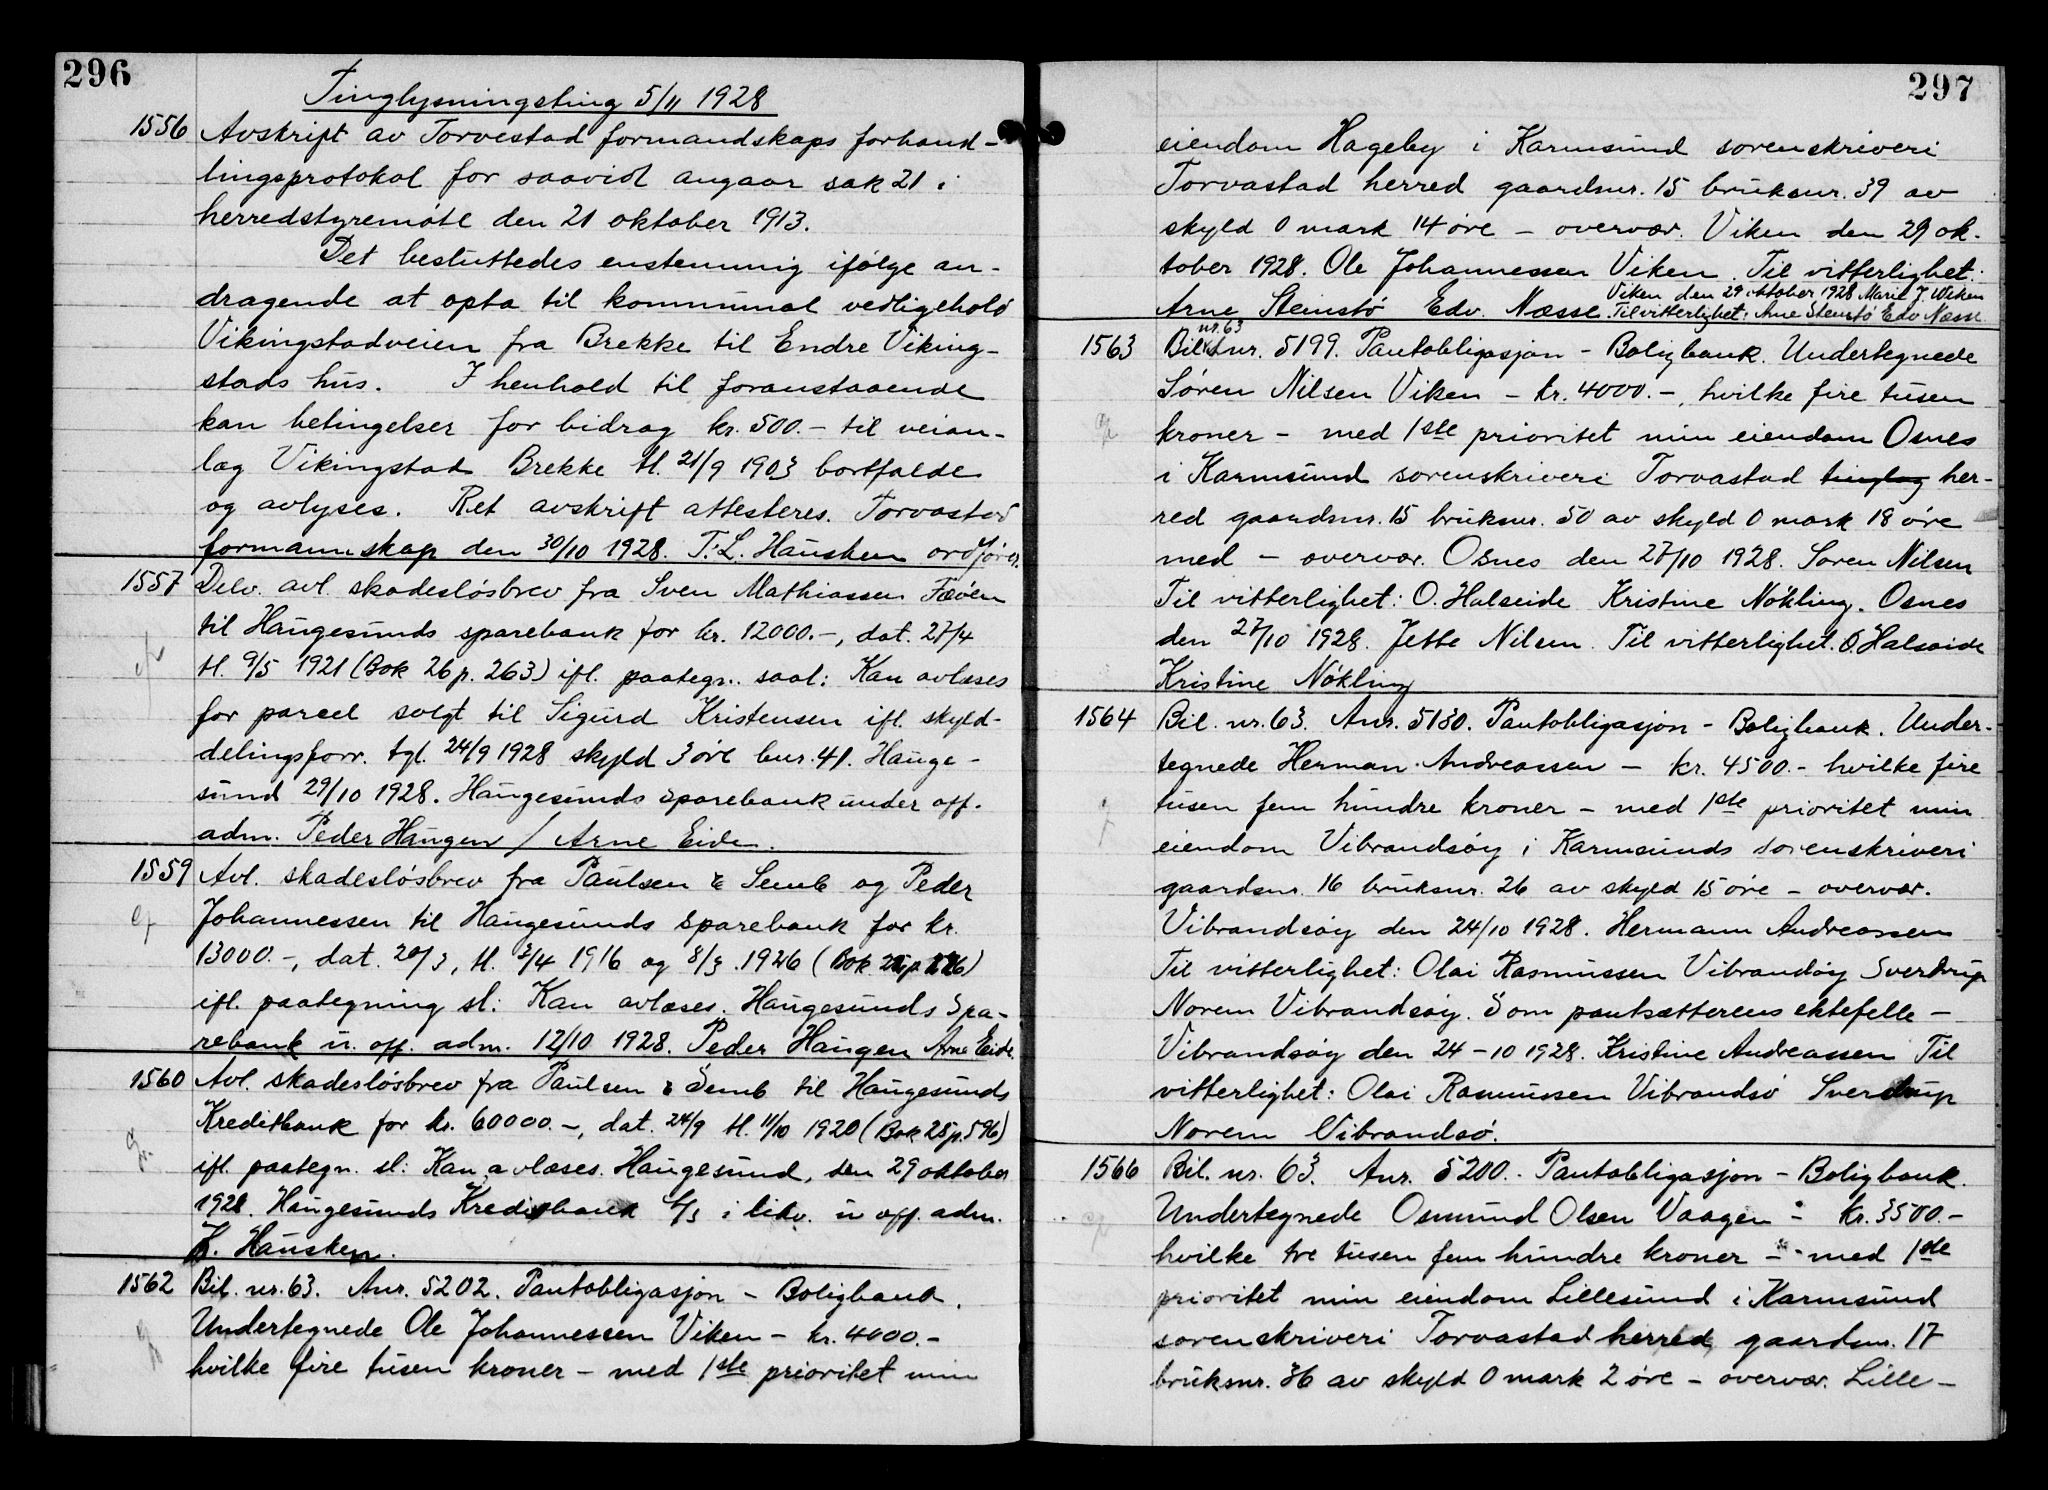 296
Tinglysningsting 5/11 1928
1556 Avskrift av Torvestad formandskaps forhand-
lingsprotokol for saavidt angaar sak 21 i
herredstyremøte den 21 oktober 1913.
Det besluttedes enstemmig ifølge an-
dragende at opta til kommunal vedligehold
Vikingstadveien fra Brekke til Endre Viking-
stads hus. I henhold til foranstaaende
kan betingelser for bidrag kr. 500.- til veian-
læg Vikingstad Brekke tl. 21/9 1903 bortfalde
og avlyses. Ret avskrift attesteres. Torvastad
formannskap den 30/10 1928. T. L. Hausken ordfører.
1557 Delv. avl. skadesløsbrev fra Sven Mathiassen Fæøen
til Haugesunds sparebank for kr. 12000.-, dat. 27/4
tl. 9/5 1921 (Bok 26 p. 263) ifl. paategn. saal: Kan avlæses
for parcel solgt til Sigurd Kristensen ifl. skyld-
delingsforr. tgl. 24/9 1928 skyld 3 øre bnr. 41. Hauge-
sund 29/10 1928. Haugesunds sparebank under off.
adm. Peder Haugen / Arne Eide.
1559 Avl. skadesløsbrev fra Paulsen & Semb og Peder
Johannessen til Haugesunds sparebank for kr.
13000.-, dat. 20/3, tl. 3/4 1916 og 8/3 1926 (Bok
ifl. paategning sl: Kan avlæses. Haugesunds Spa-
rebank u. off. adm. 12/10 1928. Peder Haugen Arne Eide.
1560 Avl. skadesløsbrev fra Paulsen & Semb til Haugesunds
Kreditbank for kr. 60000.-, dat. 24/9 tl. 11/10 1920 (Bok 25 p. 596)
ifl. paategn. sl: Kan avlæses. Haugesund, den 29 oktober
1928. Haugesunds Kreditbank A/S i likv. u off. adm.
K. Hausken.
1562 Bil. nr. 63. Anr. 5202. Pantobligasjon - Boligbank.
Undertegnede Ole Johannessen Viken - kr. 4000.-
hvilke fire tusen kroner - med 1ste prioritet min
297
eiendom Hageby i Karmsund sorenskriveri
Torvastad herred gaardsnr. 15 bruksnr. 39 av
skyld 0 mark 14 øre - overvær. Viken den 29 ok-
tober 1928. Ole Johannessen Viken. Til vitterlighet:
Arne Stemstø Edv. Næsse. Viken den 29 oktober 1928 Marie J. Viken
Til vitterlighet: Arne Stemstø Edv Næsse
1563 Bil. nr. 63 Anr. 5199. Pantobligasjon - Boligbank. Undertegnede
Søren Nilsen Viken - kr. 4000.-, hvilke fire tusen
kroner - med 1ste prioritet min eiendom Osnes
i Karmsund sorenskriveri Torvastad tinglag her-
red gaardsnr. 15 bruksnr. 50 av skyld 0 mark 18 øre
med - overvær. Osnes den 27/10 1928. Søren Nilsen
Til vitterlighet: O. Halseide Kristine Nøkling. Osnes
den 27/10 1928. Jette Nilsen. Til vitterlighet. O. Halseide
Kristine Nøkling
1564 Bil. nr. 63. Anr. 5130. Pantobligasjon - Boligbank. Under-
tegnede Herman Andreassen - kr. 4500.- hvilke fire
tusen fem hundre kroner - med 1ste prioritet min
eiendom Vibrandsøy i Karmsunds sorenskriveri
gaardsnr. 16 bruksnr. 26 av skyld 15 øre - overvær.
Vibrandsøy den 24/10 1928. Hermann Andreassen
Til vitterlighet: Olai Rasmussen Vibrandøy Sverdrup
Norem Vibrandsøy. Som pantsætterens ektefelle -
Vibrandsøy den 24-10 1928. Kristine Andreassen Til
vitterlighet: Olai Rasmussen Vibrandsø Sverdrup
Norem Vibrandsø.
1566 Bil. nr. 63. Anr. 5200. - Pantobligasjon - Boligbank.
Undertegnede Osmund Olsen Vaagen - kr. 3500.-
hvilke tre tusen fem hundre kroner - med 1ste
prioritet min eiendom Lillesund i Karmsund
sorenskriveri Torvastad herred, gaardsnr. 17
bruksnr. 36 av skyld 0 mark 2 øre - overvær. Lille-